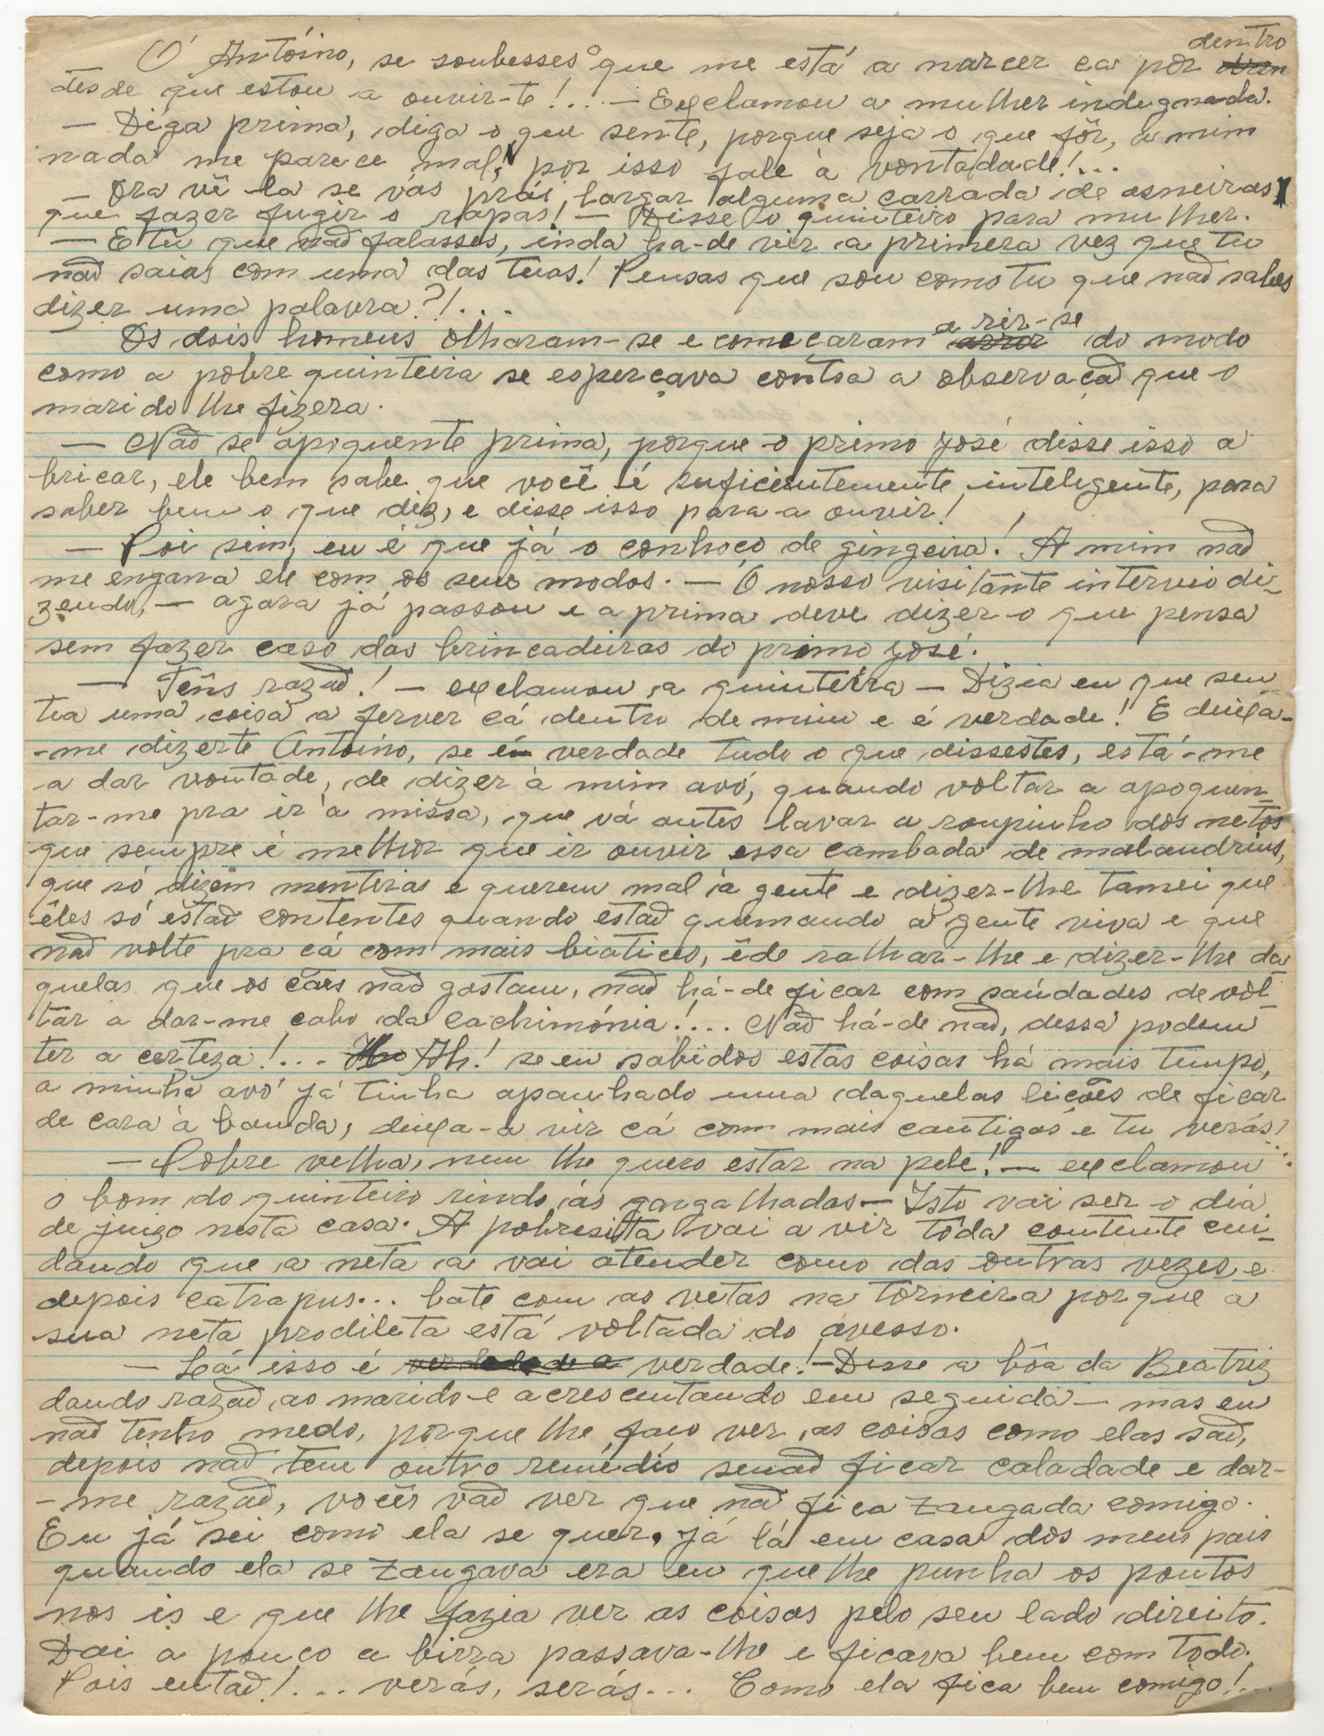 Ó Antóino, se soubesses o que me está a narcer ca por dentro
desde que estou a ouvir-te!... — Exclamou a mulher indignada.
— Diga prima, diga o que sente, porque seja o que fôr, a mim
nada me parece mal, por isso fale à vontadade!...
— Ora vê la se vás prái, largar alguma carrada de asneiras
que fazer fugir o rapas! — Disse o quinteiro para mulher.
— E tu que nað falasses, inda ha-de vir a primera vez que tu
nað saias com uma das tuas! Pensas que sou como tu que nað sabes
dizer uma palavra?!...
Os dois homens olharam-se e começaram a rir-se do modo
como a pobre quinteira se esperçava contra a observaçað que o
marido lhe fizera.
— Nað se apoquente prima, porque o primo José disse isso a
bricar, ele bem sabe que você é suficientemente, inteligente, para
saber bem o que diz, e disse isso para a ouvir!
— Poi sim, eu é que já o conheço de gingeira! A mim nað
me engana ele com os seus modos. — O nosso visitânte intervio di-
zendo, — agora já passou e a prima deve dizer o que pensa
sem fazer caso das brincadeiras do primo José.
— Têns razað! — exclamou a quinteira — Dizia eu que sen-
tia uma coisa a ferver cá dentro de mim e é verdade! E deixa-
-me dizerte Antóino, se é verdade tudo o que dissestes, está-me
a dar vontade, de dizer à mim avó, quando voltar a apoquen-
tar-me pra ir à missa, que vá antes lavar a roupinho dos netos
que sempre é melhor que ir ouvir essa cambada de malandrins,
que só dizem mentiras e querem mal à gente e dizer-lhe tamei que
êles só estað contentes quando estað quemando a gente viva e que
nað volte pra cá com mais biatices, êde ralhar-lhe e dizer-lhe da-
quelas que os cães nað gostam, nað há-de ficar com saúdades de vol-
tar a dar-me cabo da cachimónia!... Nað há-de nað, dessa podem
ter a certeza!... Ah! se eu sabidos estas coisas há mais tempo,
a minha avó já tinha apanhado uma daquelas liçoẽs de ficar
de cara à banda, deixa-a vir cá com mais cantigas e tu verás!...
— Pobre velha, nem lhe quero estar na pele! — exclamou
o bom do quinteiro rindo às gargalhadas — Isto vai ser o dia
de juizo nesta casa. A pobresitta vai a vir tôda contente cui-
dando que a neta a vai atender como das outras vezes e
depois catrapus... bate com as vetas na torneira porque a
sua neta prodileta está voltada do avesso.
— Lá isso é verdade! — Disse a bôa da Beatriz
dando razað ao marido e acrescentando em seguida — mas eu
nað tenho medo, porque lhe faço ver as coisas como elas sað,
depois nað tem outro remédio senað ficar caladade e dar-
-me razað, vocês vað ver que nað fica zangada comigo.
Eu já sei como ela se quer, já lá em casa dos meus pais
quando ela se zangava era eu que lhe punha os pontos
nos is e que lhe fazia ver as coisas pelo seu lado direito.
Dai a pouco a birra passava-lhe e ficava bem com todo.
Pois entað!... verás, serás... Como ela fica bem comigo!...